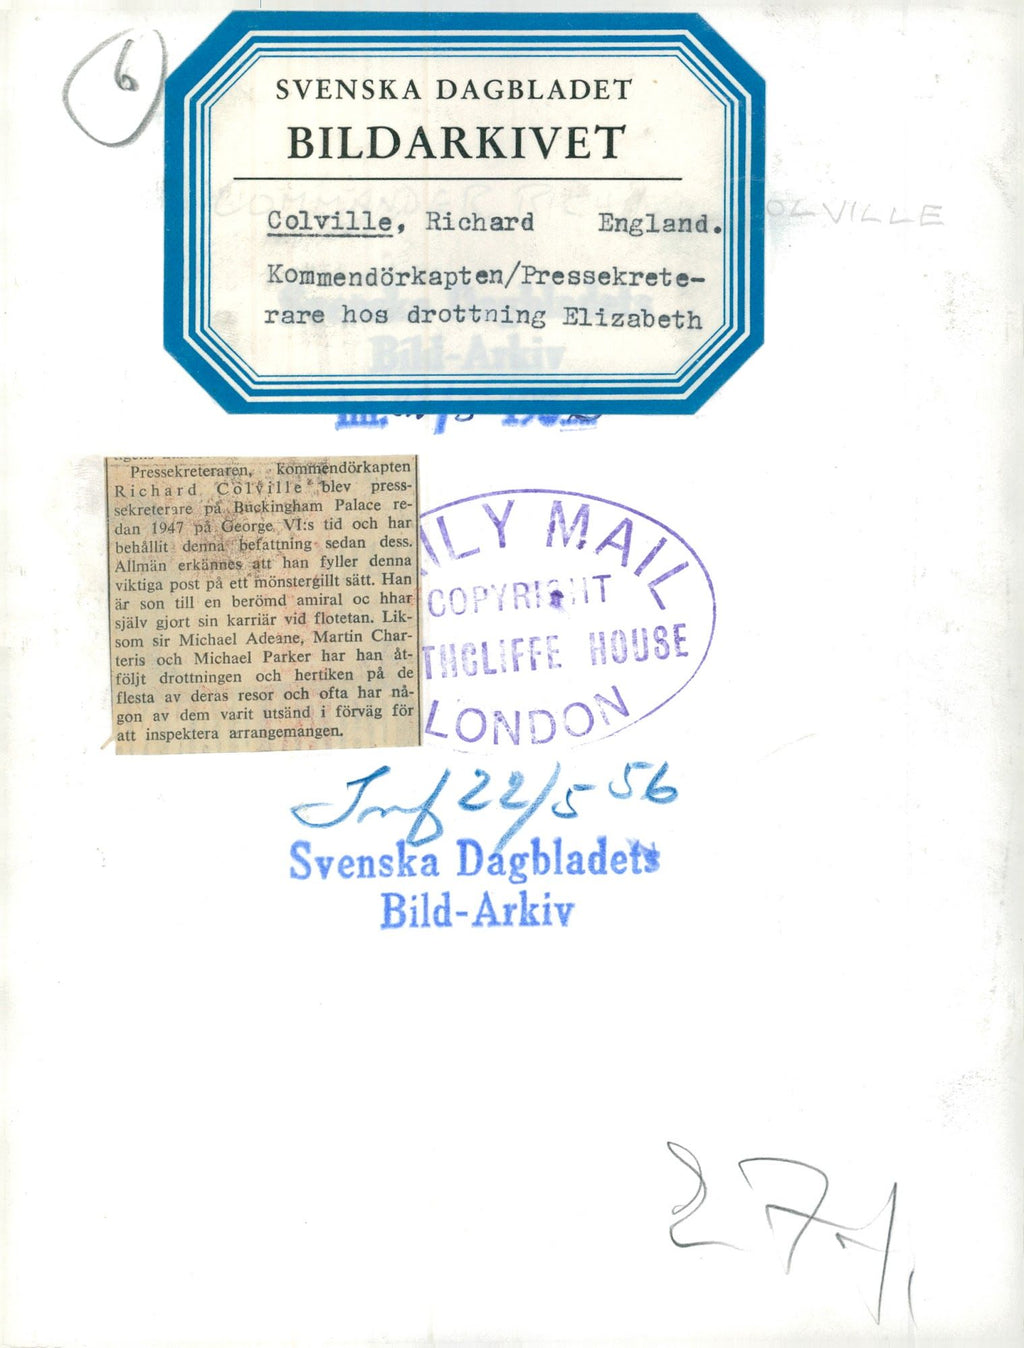 6
SVENSKA DAGBLADET
BILDARKIVET
Colville, Richard England.
Kommendörkapten/Pressekrete-
rare hos drottning Elizabeth
COLVILLE
Bild-Arkiv
Pressekreteraren, kommendörkapten
Richard Colville blev press-
sekreterare på Buckingham Palace re-
dan 1947 på George VI:s tid och har
behållit denna befattning sedan dess.
Allmän erkännes att han fyller denna
viktiga post på ett mönstergillt sätt. Han
är son till en berömd amiral oc hhar
själv gjort sin karriär vid flotetan. Lik-
som sir Michael Adeane, Martin Char-
teris och Michael Parker har han åt-
följt drottningen och hertiken på de
flesta av deras resor och ofta har nå-
gon av dem varit utsänd i förväg för
att inspektera arrangemangen.
ILY MAIL
COPYRIGHT
THCLIFFE HOUSE
LONDON
Inf 22/5 56
Svenska Dagbladets
Bild-Arkiv